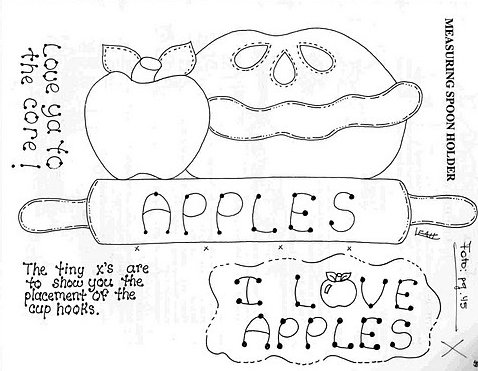 MEASURING SPOON HOLDER
Love ya to
the core!
APPLES
The tiny x's are
to show you the
placement of the
cup hooks.
I LOVE
APPLES
Foto: pg. 45